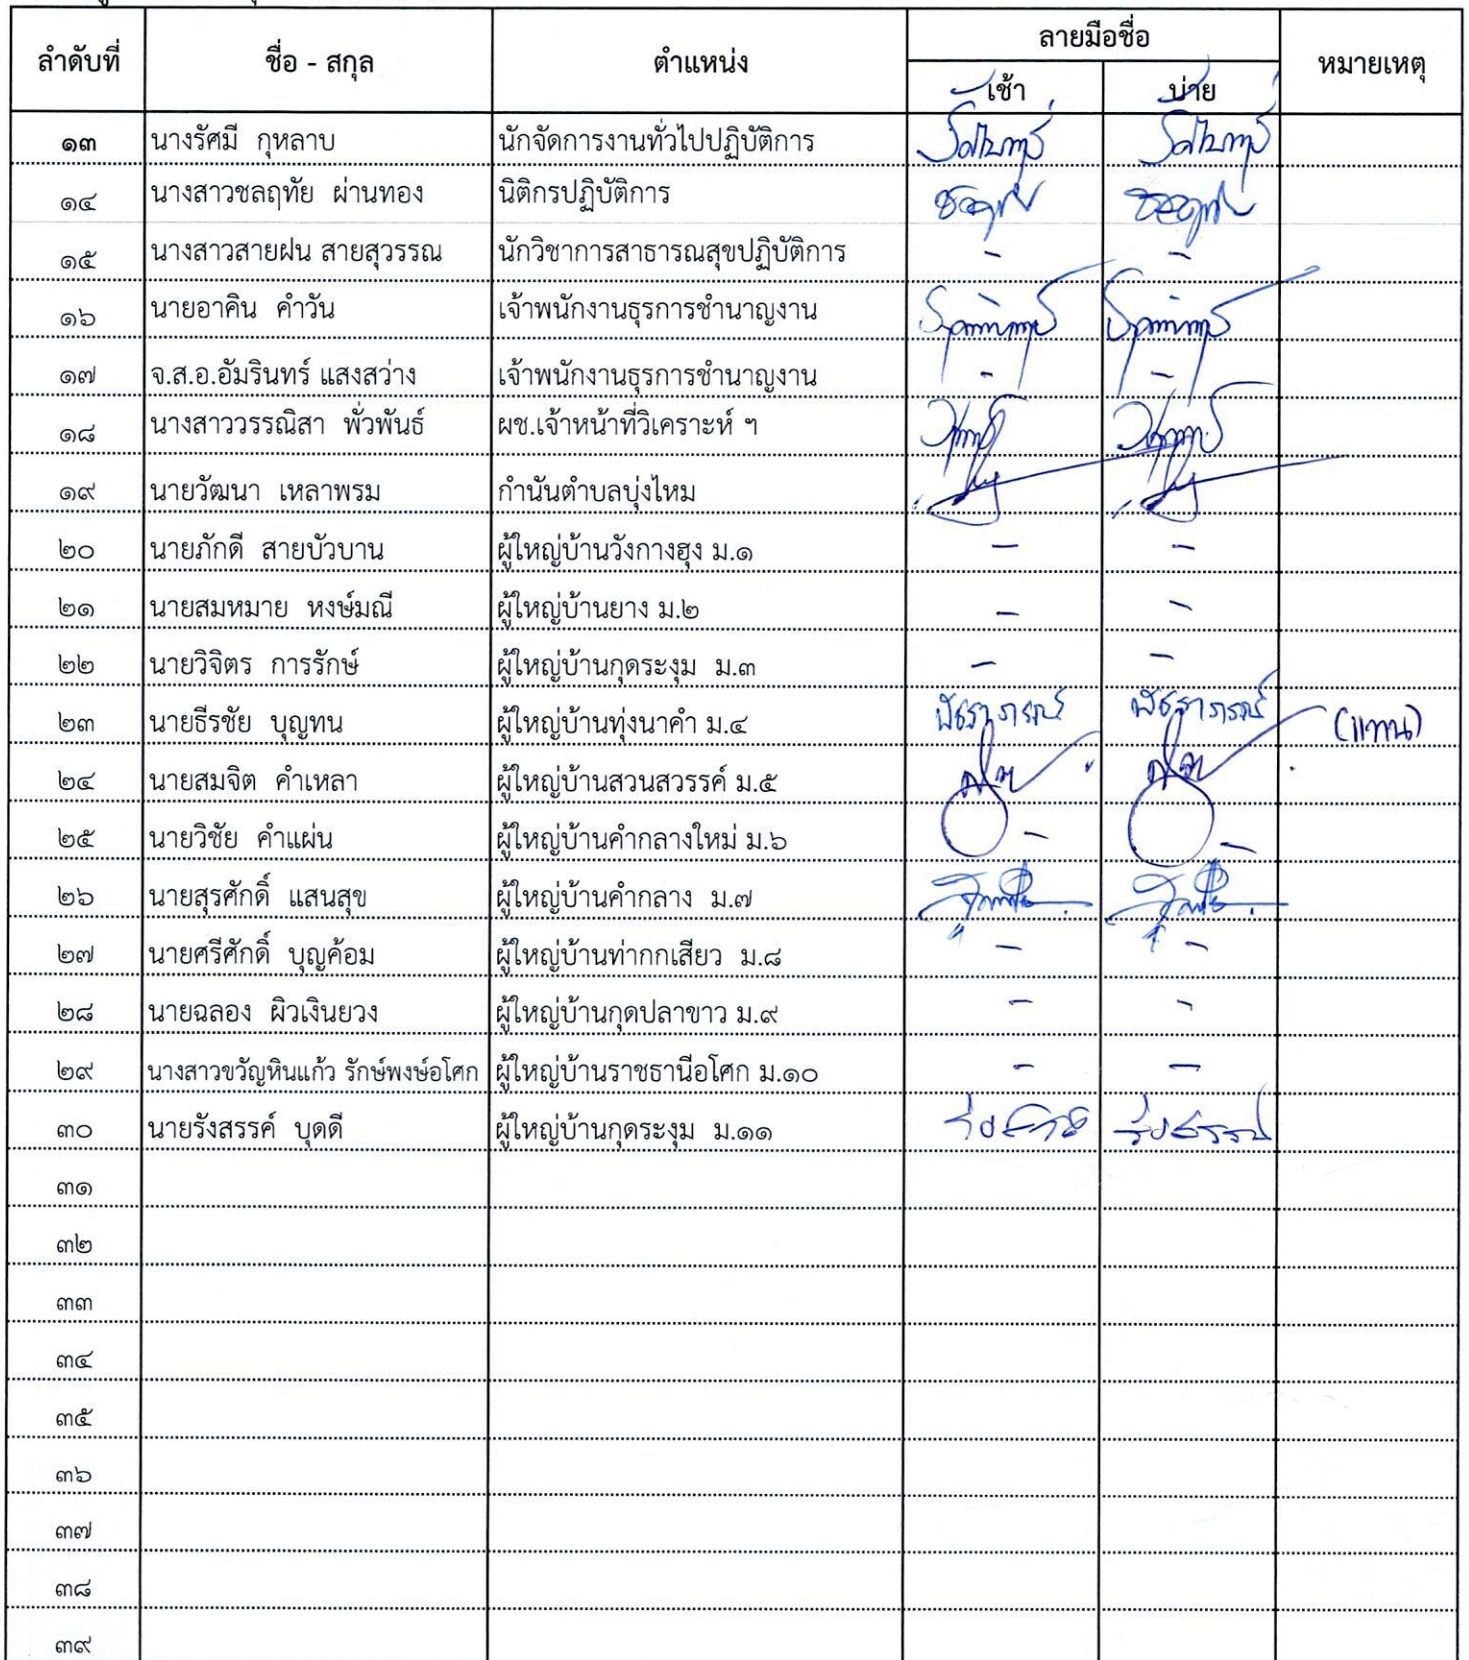 ลายมือชื่อ
ลำดับที่ ชื่อ - สกุล ตำแหน่ง หมายเหตุ
เช้า บ่าย
๑๓ นางรัศมี กุหลาบ นักจัดการงานทั่วไปปฏิบัติการ
๑๔ นางสาวชลฤทัย ผ่านทอง นิติกรปฏิบัติการ
๑๕ นางสาวสายฝน สายสุวรรณ นักวิชาการสาธารณสุขปฏิบัติการ - -
๑๖ นายอาคิน คำวัน เจ้าพนักงานธุรการชำนาญงาน
๑๗ จ.ส.อ.อัมรินทร์ แสงสว่าง เจ้าพนักงานธุรการชำนาญงาน - -
๑๘ นางสาววรรณิสา พั่วพันธ์ ผช.เจ้าหน้าที่วิเคราะห์ ฯ
๑๙ นายวัฒนา เหลาพรม กำนันตำบลบุ่งไหม
๒๐ นายภักดี สายบัวบาน ผู้ใหญ่บ้านวังกางฮุง ม.๑ - -
๒๑ นายสมหมาย หงษ์มณี ผู้ใหญ่บ้านยาง ม.๒ - -
๒๒ นายวิจิตร การรักษ์ ผู้ใหญ่บ้านกุดระงุม ม.๓ - -
๒๓ นายธีรชัย บุญทน ผู้ใหญ่บ้านทุ่งนาคำ ม.๔ พัชราภรณ์ พัชราภรณ์ (แทน)
๒๔ นายสมจิต คำเหลา ผู้ใหญ่บ้านสวนสวรรค์ ม.๕
๒๕ นายวิชัย คำแผ่น ผู้ใหญ่บ้านคำกลางใหม่ ม.๖ - -
๒๖ นายสุรศักดิ์ แสนสุข ผู้ใหญ่บ้านคำกลาง ม.๗
๒๗ นายศรีศักดิ์ บุญค้อม ผู้ใหญ่บ้านท่ากกเสียว ม.๘ - -
๒๘ นายฉลอง ผิวเงินยวง ผู้ใหญ่บ้านกุดปลาขาว ม.๙ - -
๒๙ นางสาวขวัญหินแก้ว รักษ์พงษ์อโศก ผู้ใหญ่บ้านราชธานีอโศก ม.๑๐ - -
๓๐ นายรังสรรค์ บุดดี ผู้ใหญ่บ้านกุดระงุม ม.๑๑ รังสรรค์ รังสรรค์
๓๑
๓๒
๓๓
๓๔
๓๕
๓๖
๓๗
๓๘
๓๙